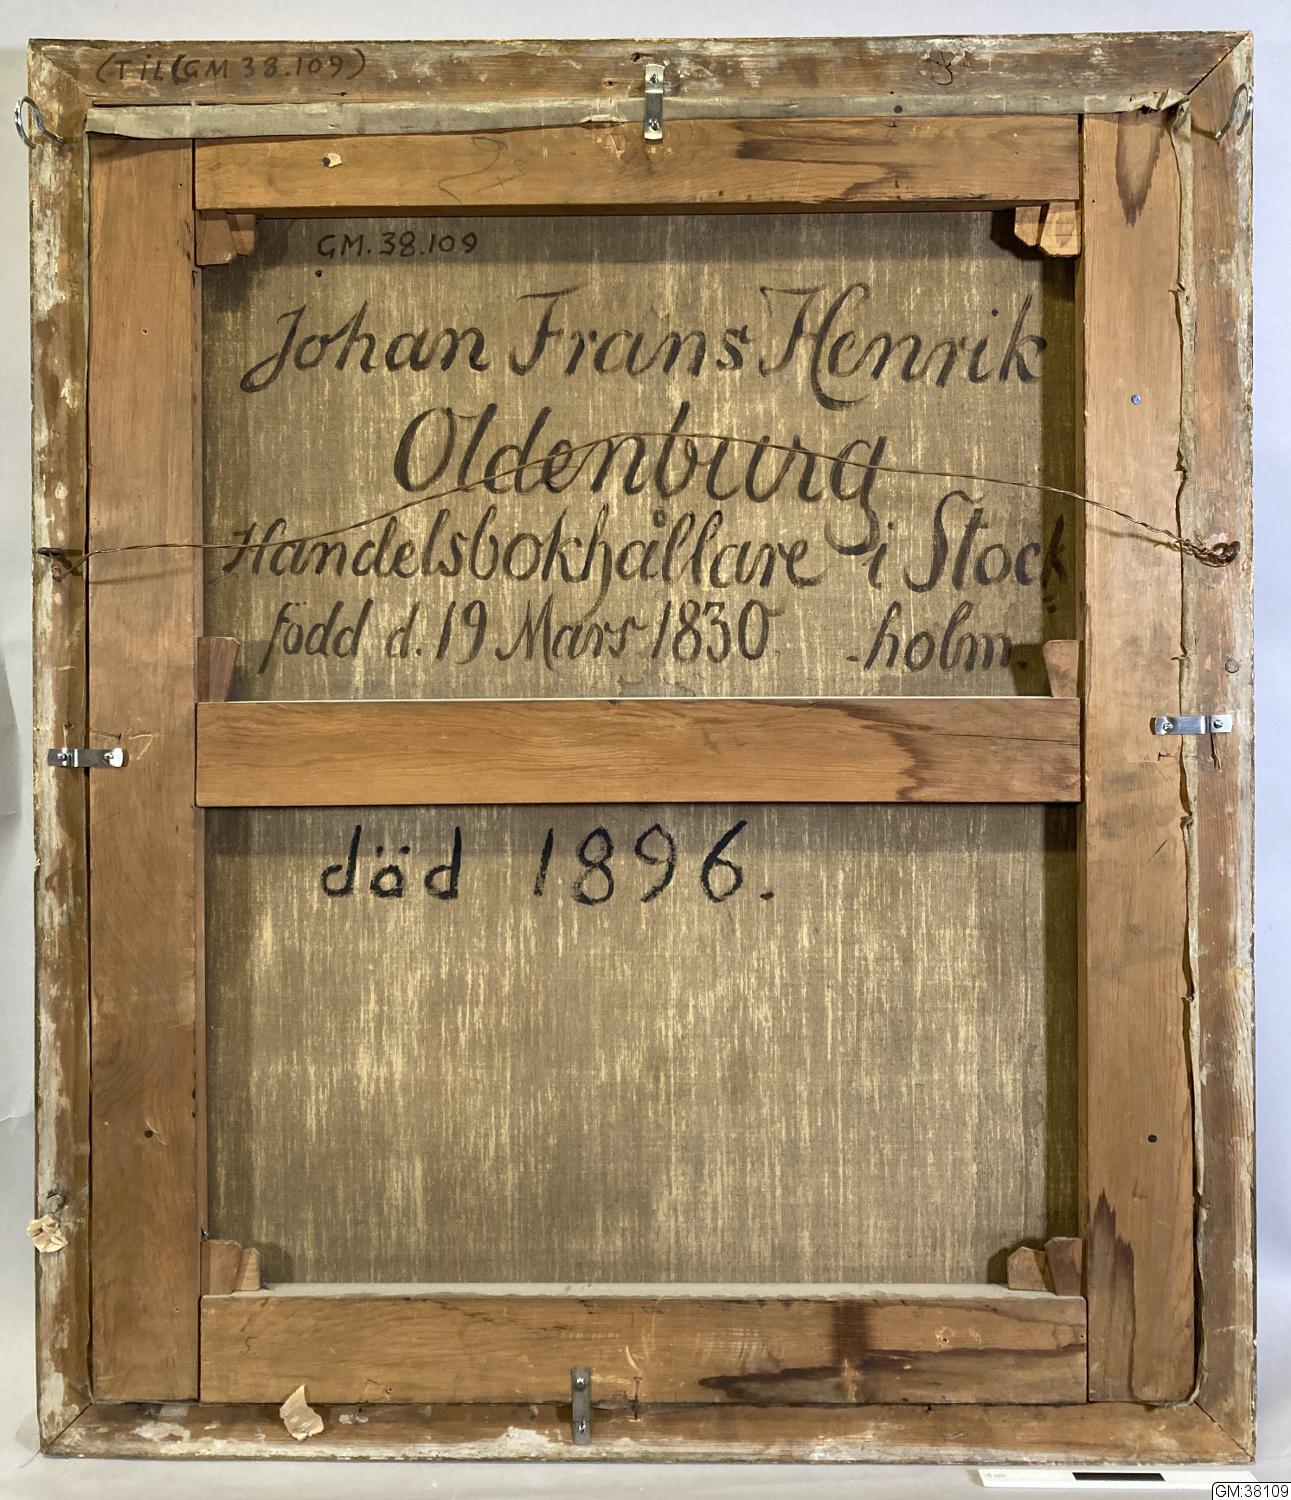 (TiL(GM 38.109)
GM.38.109
Johan Frans Henrik
Oldenburg
Handelsbokhållare i Stock
född d. 19 Mars 1830. -holm.
död 1896.
GM:38109